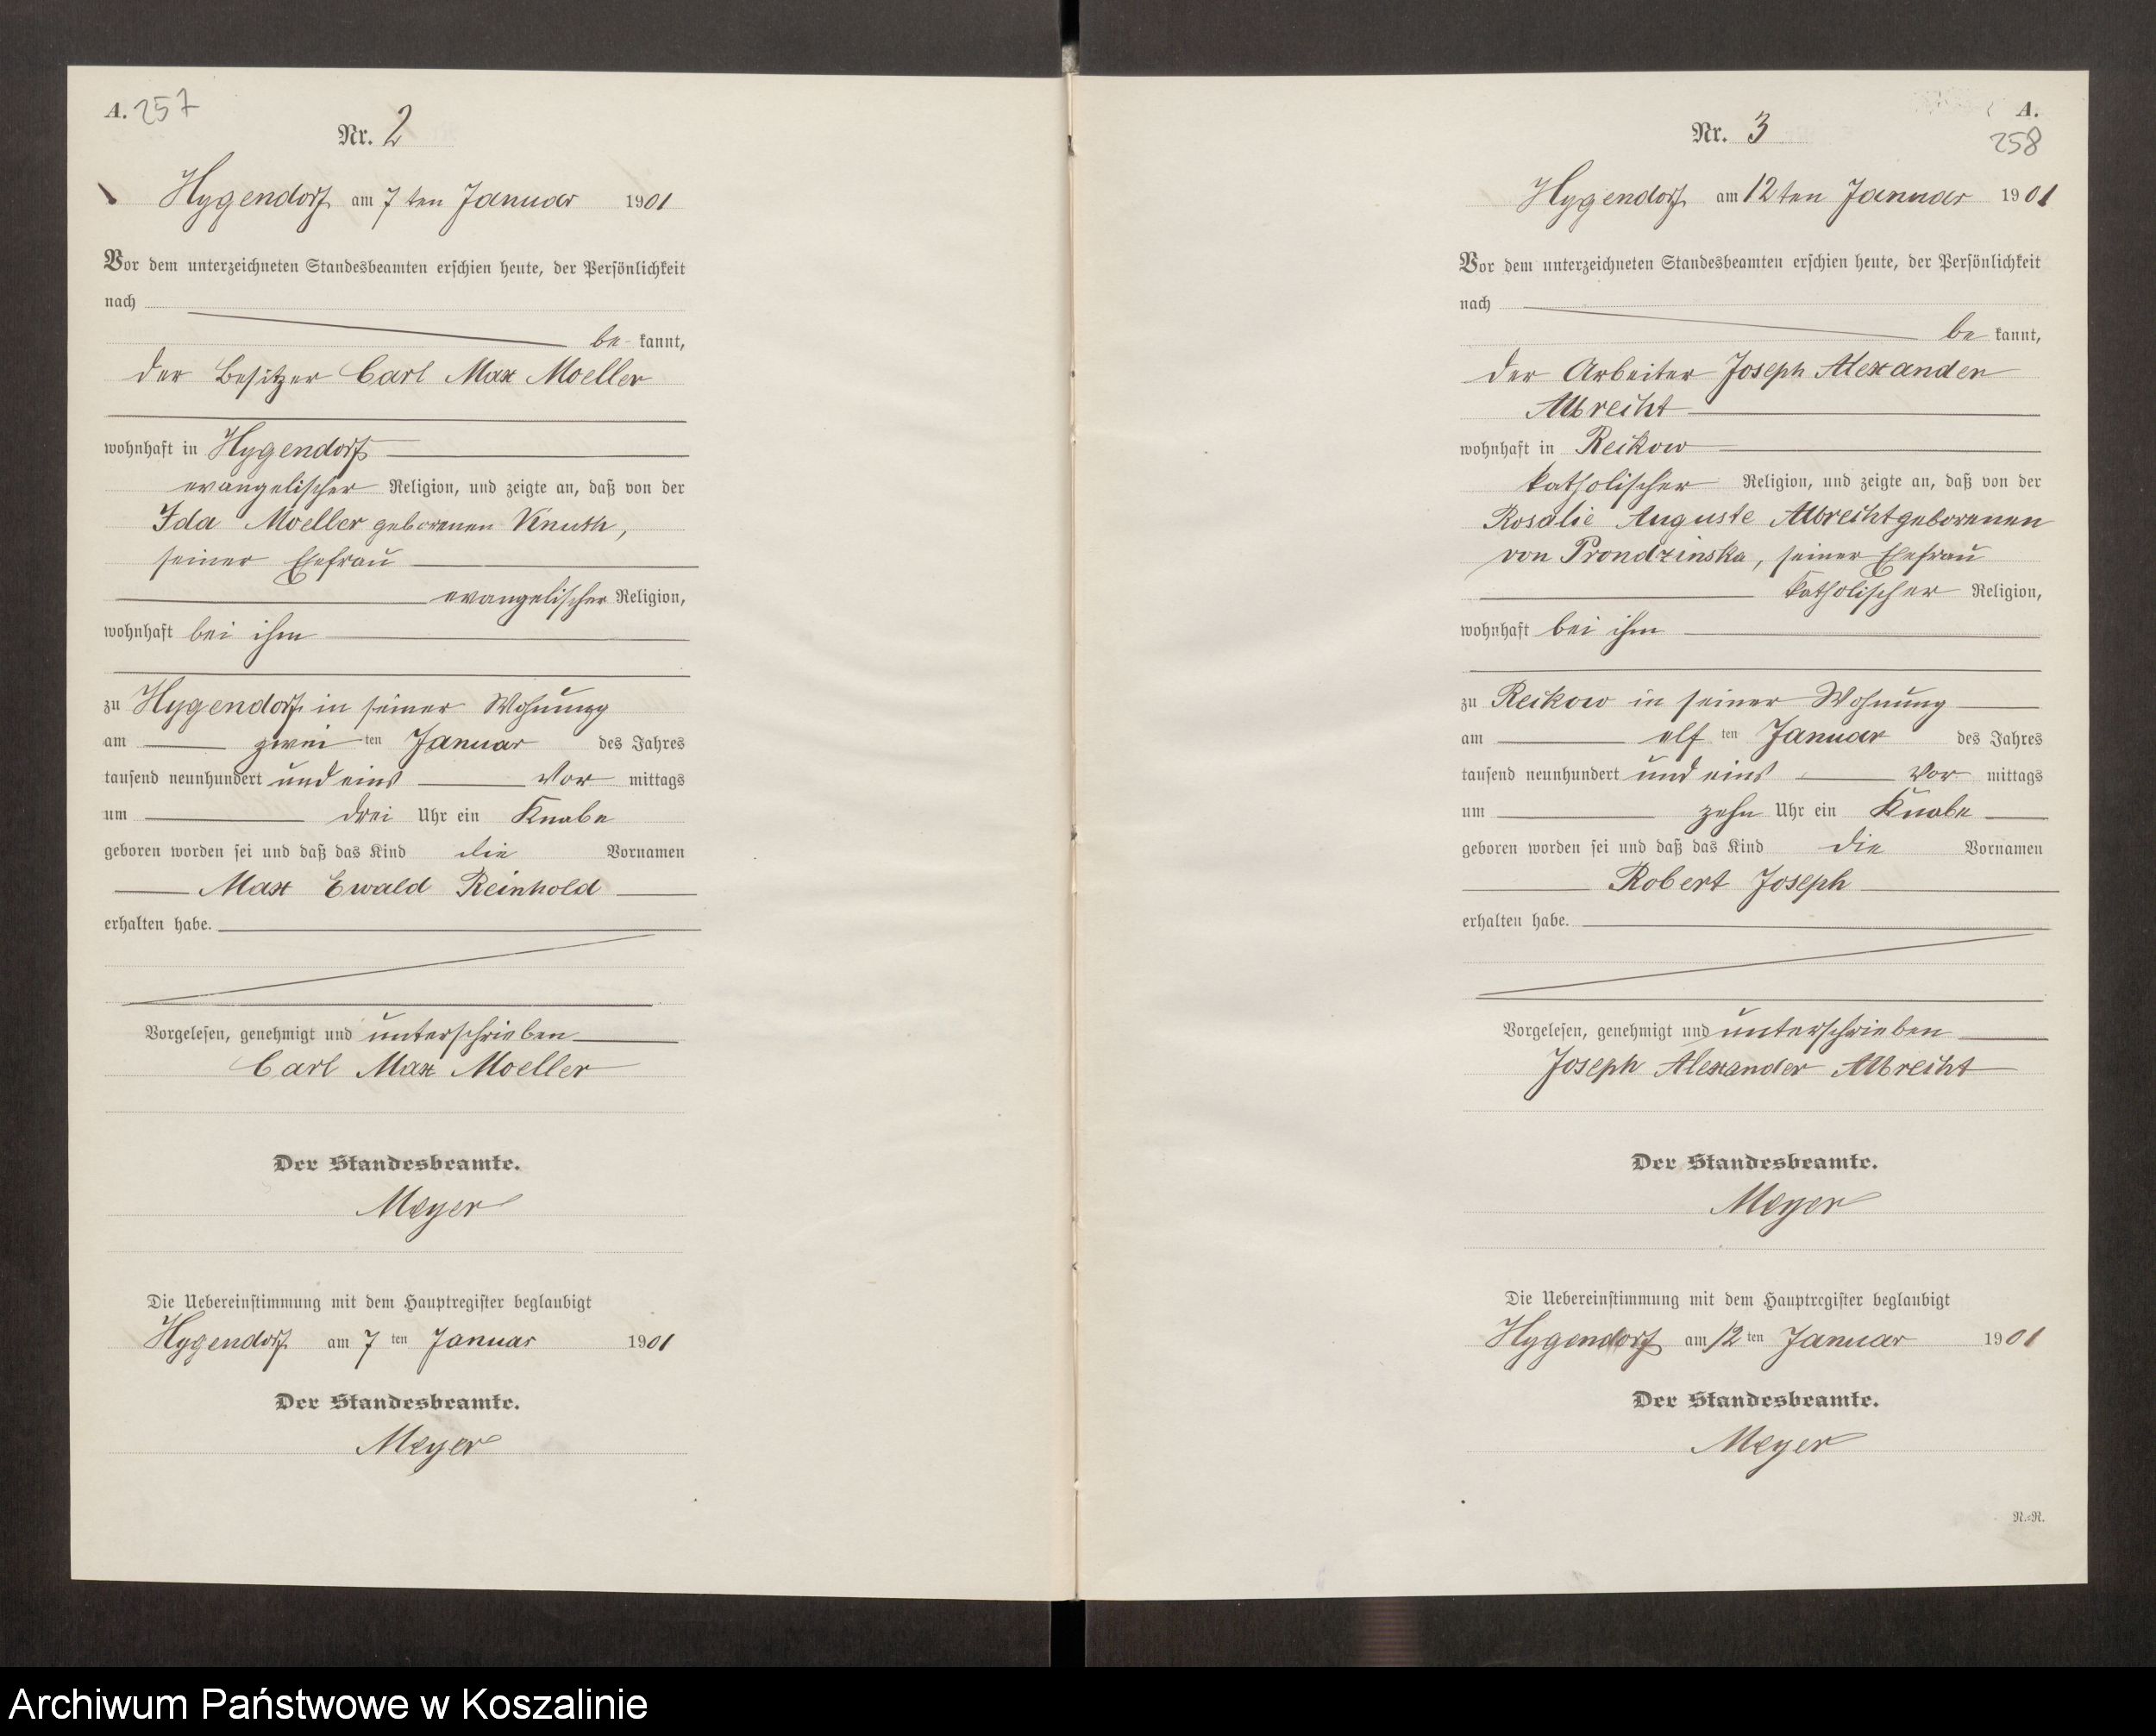 A. 257
Nr. 2
Hygendorf am 7 ten Januar 1901
Vor dem unterzeichneten Standesbeamten erschien heute, der Persönlichkeit
nach
be kannt,
der Besitzer Carl Max Moeller
wohnhaft in Hygendorf
evangelischer Religion, und zeigte an, daß von der
Ida Moeller geborenen Knuth,
seiner Ehefrau
evangelischer Religion,
wohnhaft bei ihm
zu Hygendorf in seiner Wohnung
am zwei ten Januar des Jahres
tausend neunhundert und eins Vor mittags
um drei Uhr ein Knabe
geboren worden sei und daß das Kind die Vornamen
Max Ewald Reinhold
erhalten habe.
Vorgelesen, genehmigt und unterschrieben
Carl Max Moeller
Der Standesbeamte.
Meyer
Die Uebereinstimmung mit dem Hauptregister beglaubigt
Hygendorf am 7 ten Januar 1901
Der Standesbeamte.
Meyer
A.
258
Nr. 3
Hygendorf am 12 ten Januar 1901
Vor dem unterzeichneten Standesbeamten erschien heute, der Persönlichkeit
nach
be kannt,
der Arbeiter Joseph Alexander
Albrecht
wohnhaft in Reikow
katholischer Religion, und zeigte an, daß von der
Rosalie Auguste Albrecht geborenen
von Prondzinska, seiner Ehefrau
katholischer Religion,
wohnhaft bei ihm
zu Reikow in seiner Wohnung
am elf ten Januar des Jahres
tausend neunhundert und eins Vor mittags
um zehn Uhr ein Knabe
geboren worden sei und daß das Kind die Vornamen
Robert Joseph
erhalten habe.
Vorgelesen, genehmigt und unterschrieben
Joseph Alexander Albrecht
Der Standesbeamte.
Meyer
Die Uebereinstimmung mit dem Hauptregister beglaubigt
Hygendorf am 12 ten Januar 1901
Der Standesbeamte.
Meyer
N.-R.
Archiwum Państwowe w Koszalinie